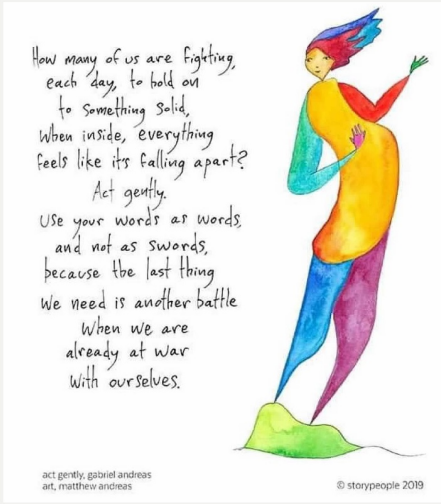 How many of us are fighting,
each day, to hold on
to something solid,
when inside, everything
feels like its falling apart?
Act gently.
Use your words as words,
and not as swords,
because the last thing
we need is another battle
when we are
already at war
with ourselves.
act gently, gabriel andreas
art, matthew andreas
© storypeople 2019